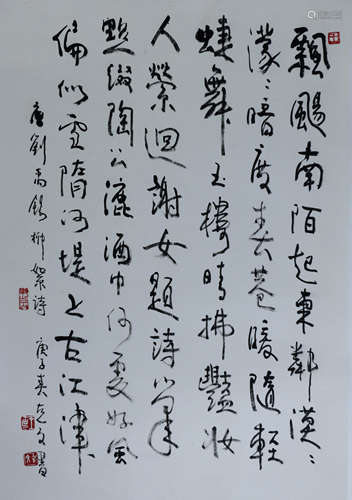 飄颺南陌起東鄰漠〻
濛〻暗度春巷暖隨輕
蜨舞玉樓晴拂豔妝
人縈迴謝女題詩筆
點綴陶公漉酒巾何處好風
偏似雪隋河堤上古江津
唐劉禹錫柳絮詩
庚子春